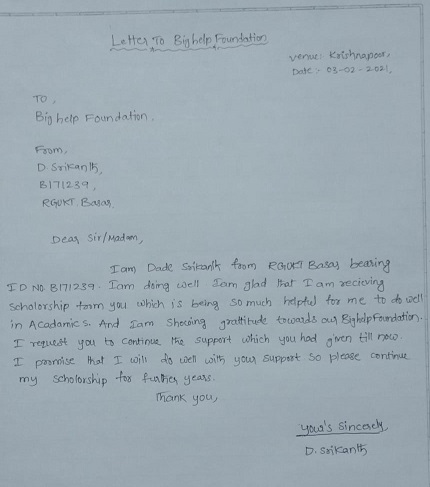 Letter To Bighelp Foundation
Venue: Krishnapoor,
Date :- 03-02-2021,
To,
Big help Foundation.
From,
D. Srikanth,
B171239,
RGUKT, Basar.
Dear Sir/Madam,
Iam Dade Srikanth from RGUKT Basar bearing
ID NO B171239. Iam doing well Iam glad that I am recieving
Scholorship form you which is being so much helpful for me to do well
in Acadamics. And Iam Showing grattitude towards our BighelpFoundation.
I request you to continue the support which you had given till now.
I promise that I will do well with your support so please continue
my scholorship for further years.
Thank you,
Your's Sincerely,
D. Srikanth